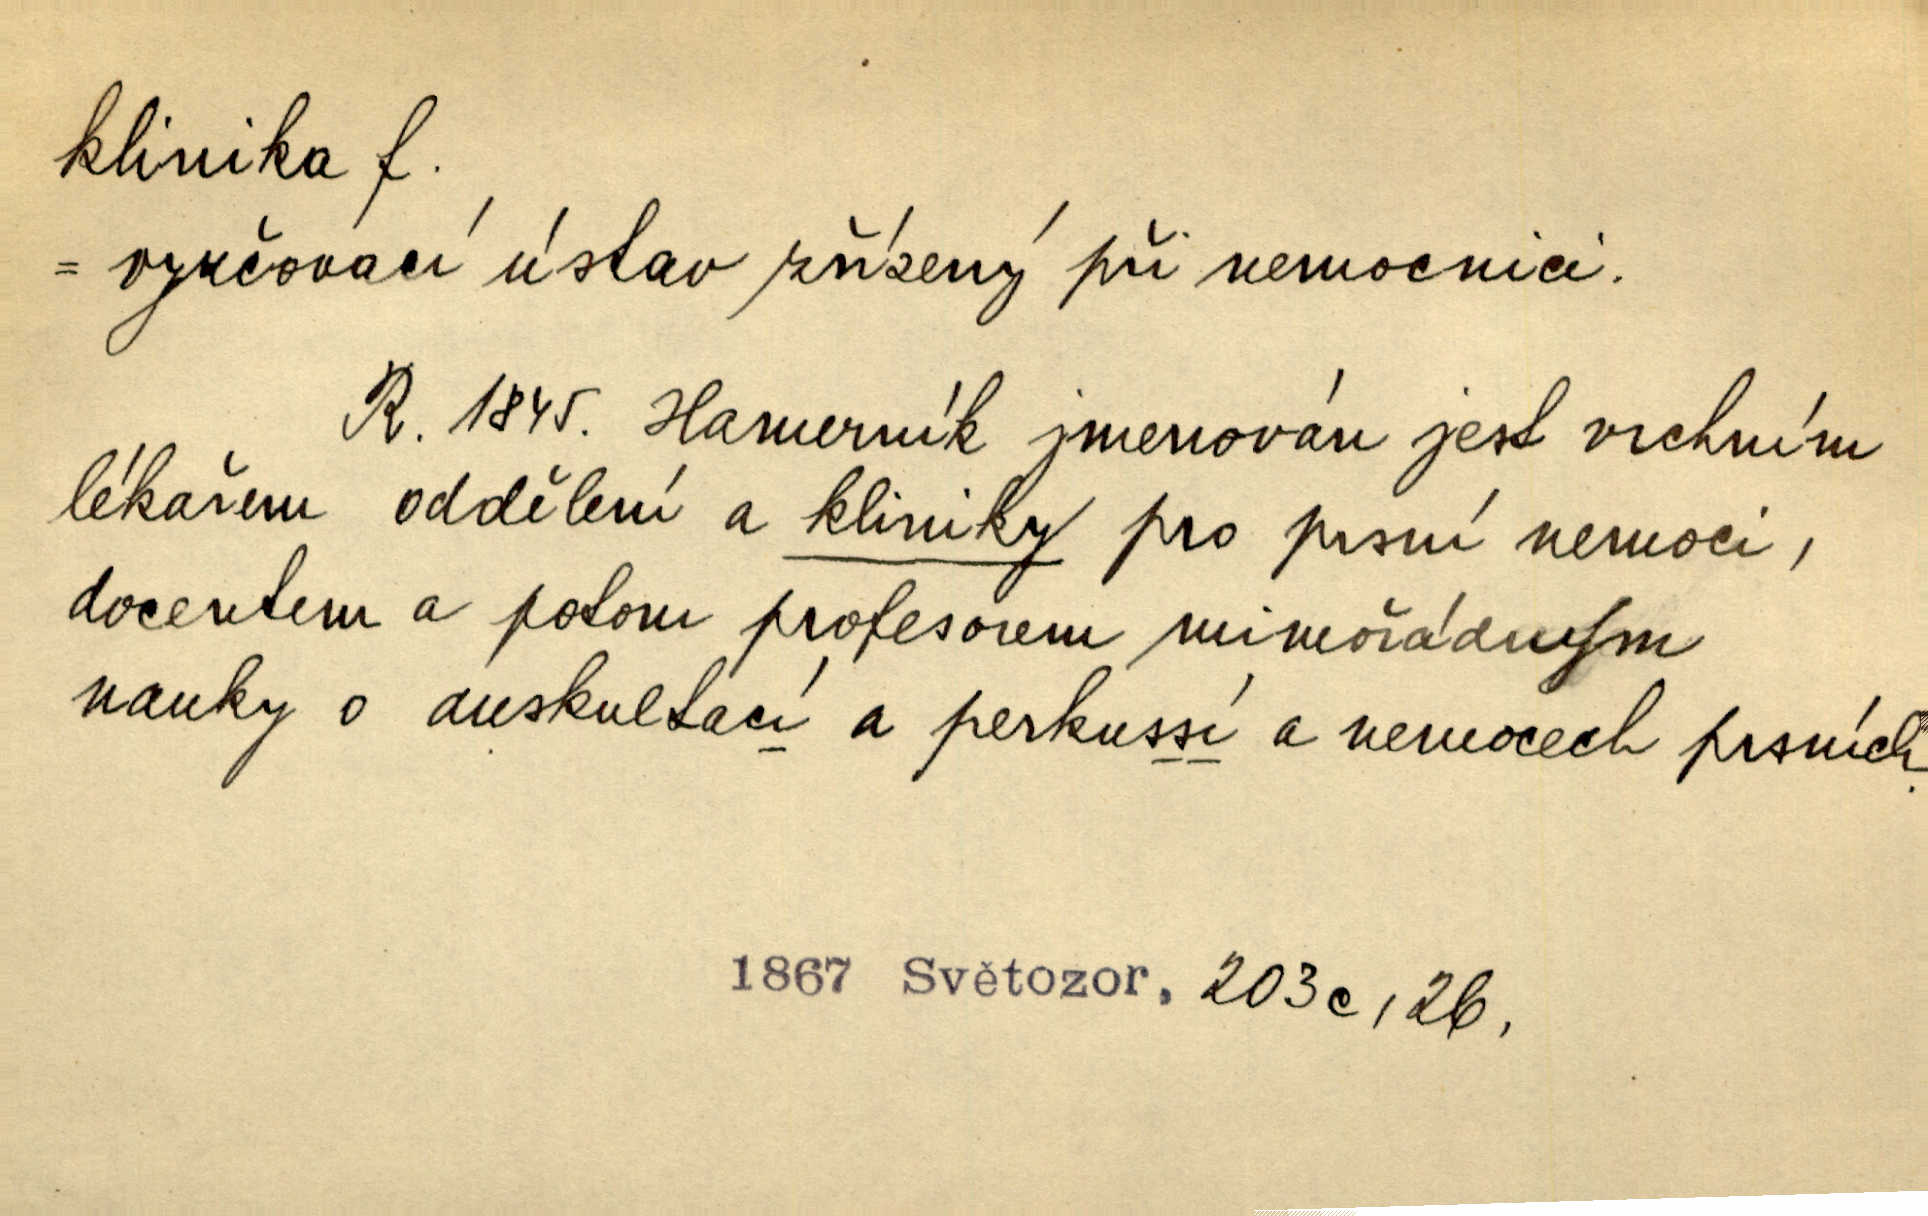 klinika f.
= vyučovací ústav zřízený při nemocnici.
R. 1845. Hamerník jmenován jest vrchním
lékařem oddělení a kliniky pro prsní nemoci,
docentem a potom profesorem mimořádným
nauky o auskultací a perkussí a nemocech prsních.
1867 Světozor, 203c, 26,